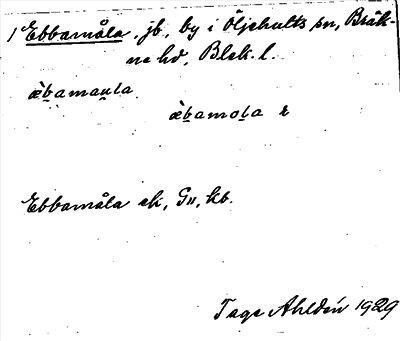 1 Ebbamåla, jb, by i Öljehults sn, Bräk-
ne hd, Blek. l.
æ̀bamau̯la
æ̀bamola
Ebbamåla ek, Gs, kb.
Tage Ahldén 1929